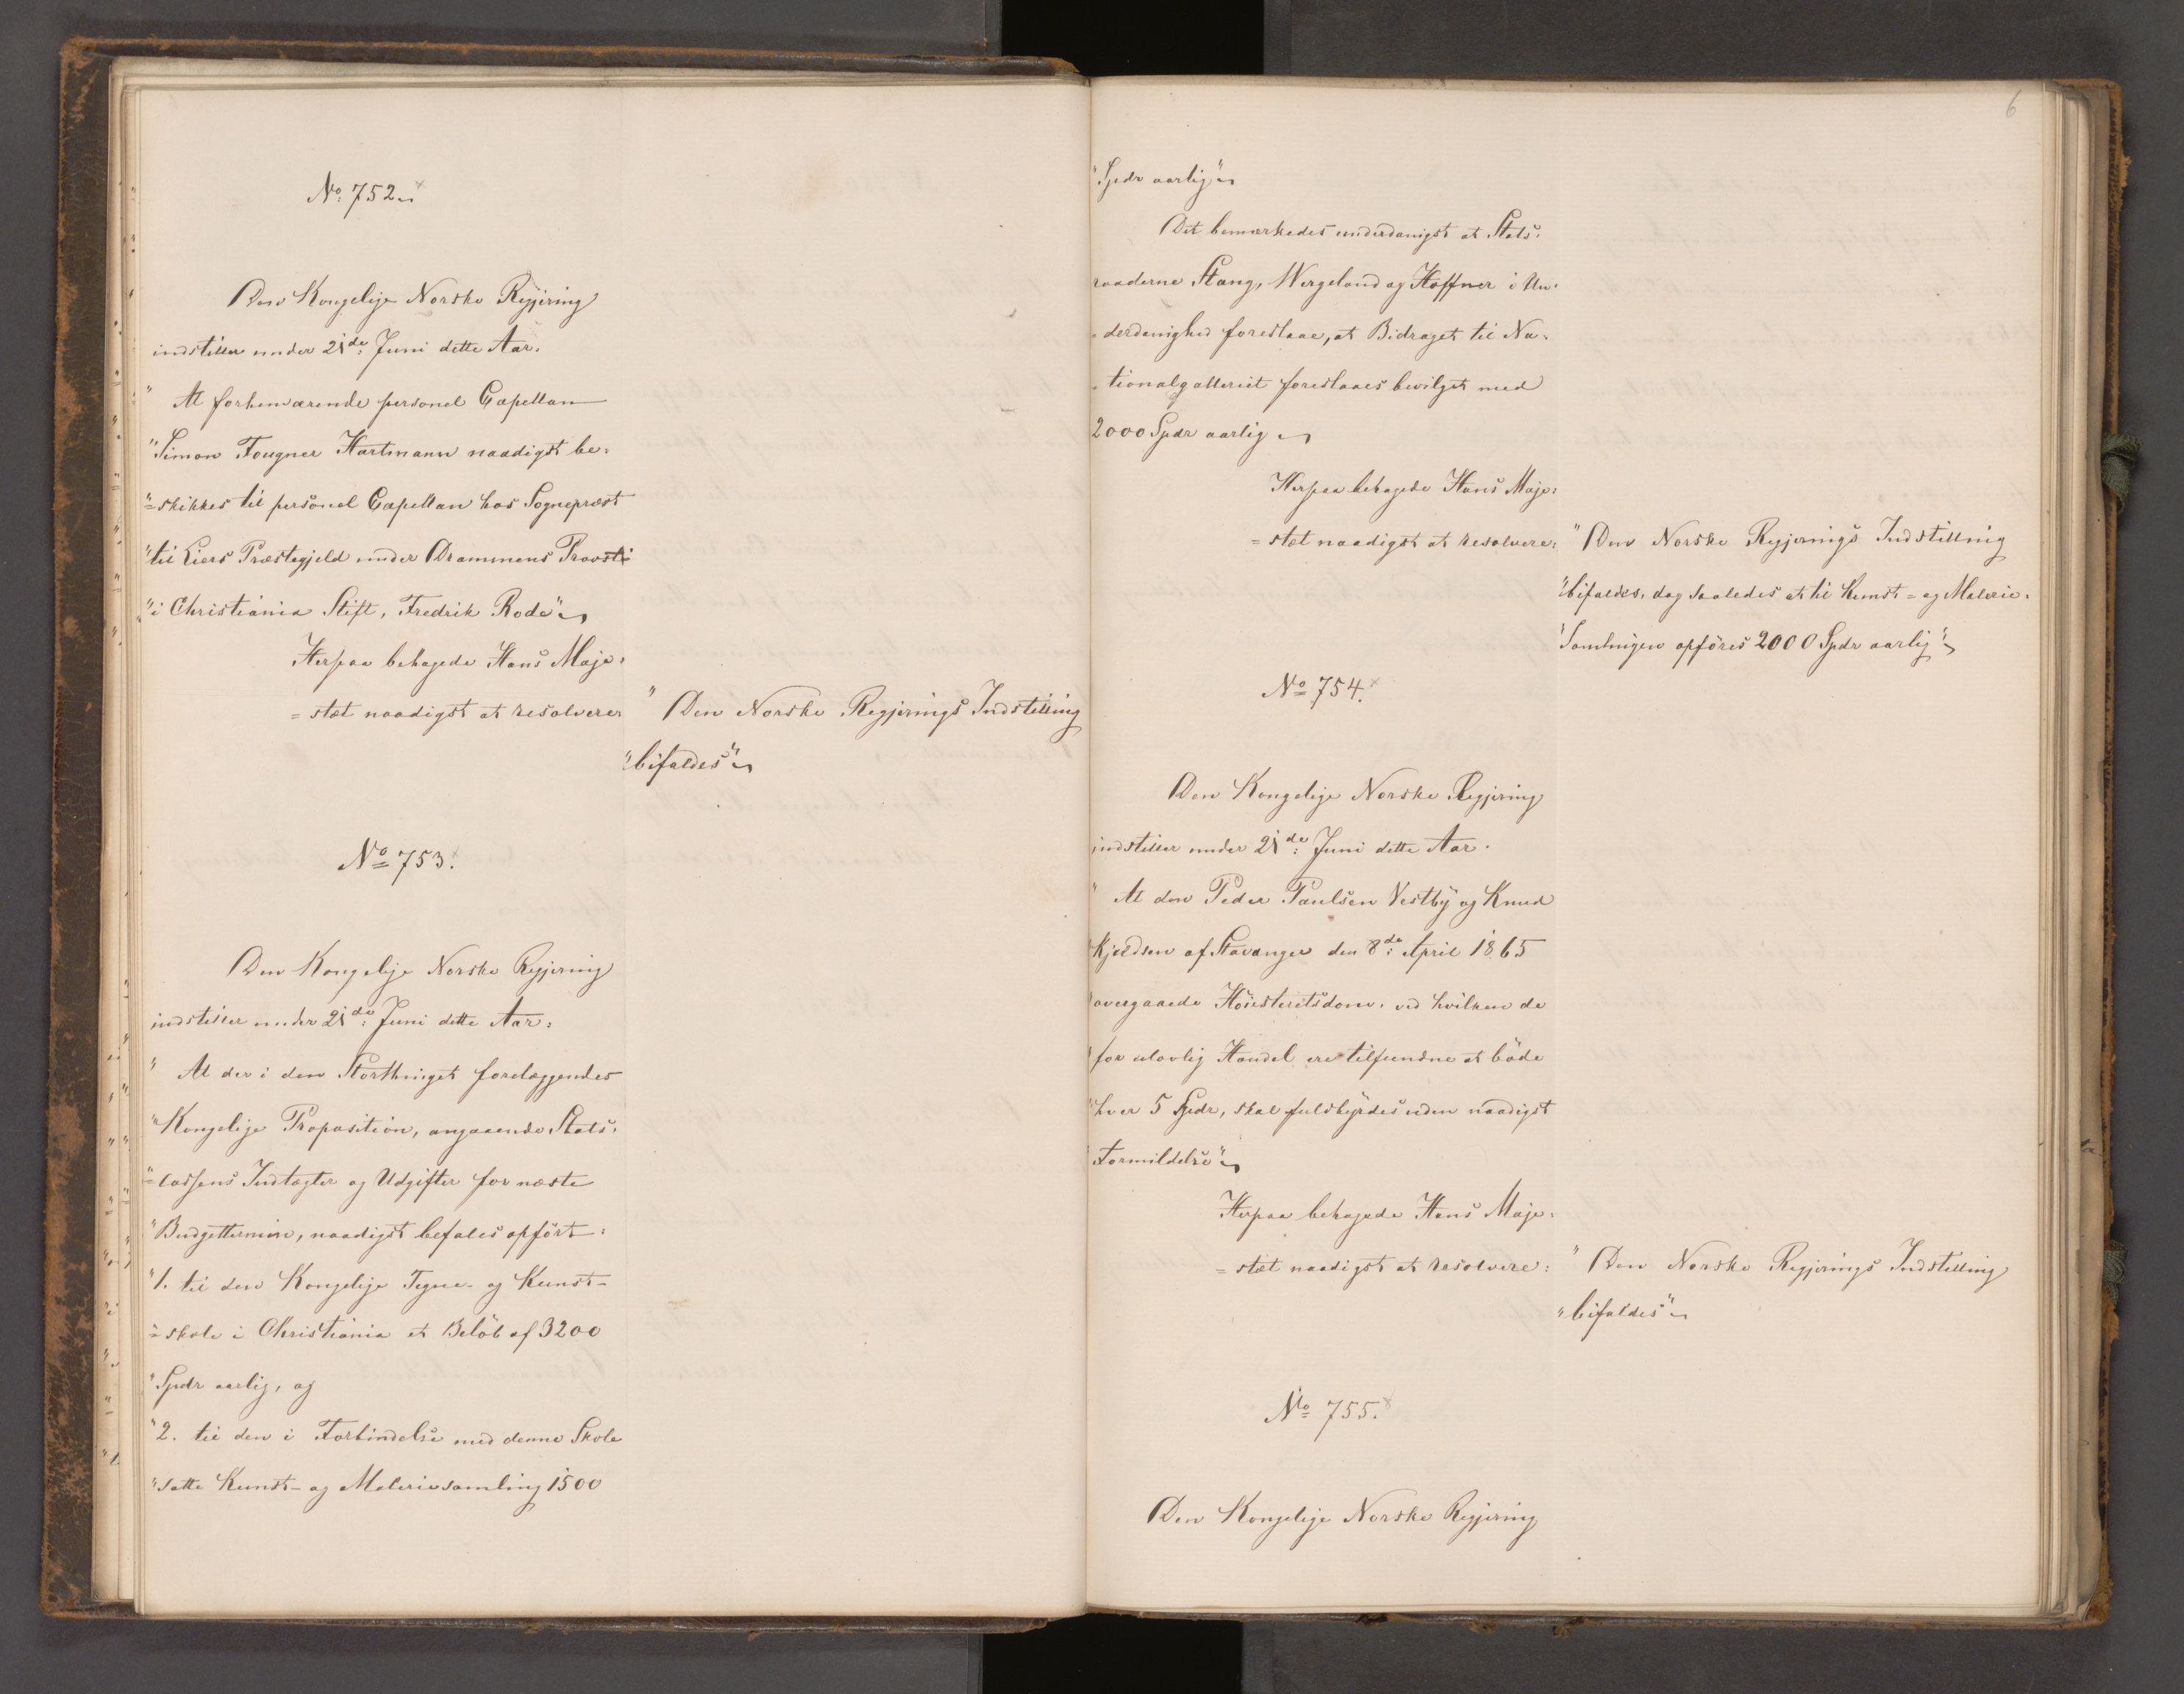 No. 752.
Den Kongelige Norske Regjering
indstiller under 21de Juni dette Aar.
" At forhenværende personel Capellan
"Simon Fougner Hartmann naadigst be-
"=skikkes til personel Capellan hos Sognepræst
"til Liers Præstegjeld under Drammens Provsti
"i Christiania Stift, Fredrik Rode"
Herpaa behagede Hans Maje-
=stæt naadigst at resolvere:
" Den Norske Regjerings Indstilling
"bifaldes"
No 753.
Den Kongelige Norske Regjering
indstiller under 21de Juni dette Aar:
" At der i den Storthinget forelæggendes
"Kongelige Proposition, angaaende Stats-
"=cassens Indtægter og Udgifter for næste
"Budgettermin, naadigst befales opført:
"1. til den Kongelige Tegne- og Kunst-
"=skole i Christiania et Beløb af 3200
"Spdr aarlig, og
"2. til den i Forbindelse med denne Skole
"satte Kunst- og Maleriesamling 1500
6
"Spdr aarlig"
Det bemærkedes underdanigst at Stats-
raaderne Stang, Wergeland og Haffner i Un-
=derdanighed foreslaae, at Bidraget til Na-
=tionalgalleriet foreslaaes bevilget med
2000 Spdr aarlig
Herpaa behagede Hans Maje-
=stæt naadigst at resolvere:
" Den Norske Regjerings Indstilling
"bifaldes, dog saaledes at til Kunst- og Malerie-
"Samlingen opføres 2000 Spdr aarlig"
No 754.
Den Kongelige Norske Regjering
indstiller under 21de Juni dette Aar.
" At den Peder Paulsen Vestby og Knud
"Kjeldsen af Stavanger den 8de April 1865
"overgaaede Høiesteretsdom, ved hvilken de
"for ulovlig Handel ere tilfundne at bøde
"hver 5 Spdr, skal fuldbyrdes uden naadigst
"Formildelse"
Herpaa behagede Hans Maje-
=stæt naadigst at resolvere:
" Den Norske Regjerings Indstilling
"bifaldes"
No 755.
Den Kongelige Norske Regjering